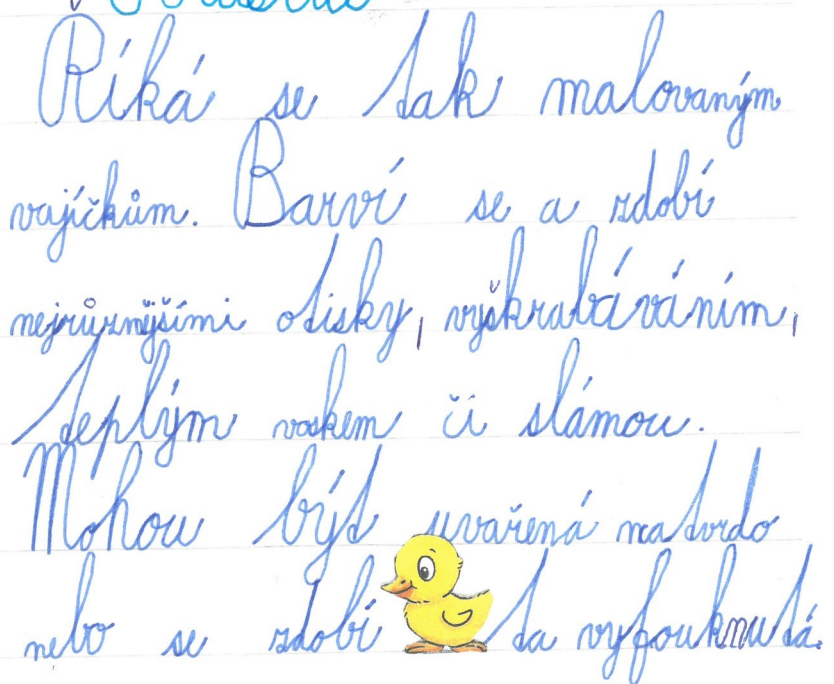 Říká se tak malovaným
vajíčkům. Barví se a zdobí
nejrůznějšími otisky, vyškrabáváním,
teplým voskem či slámou.
Mohou být uvařená natvrdo
nebo se zdobí ta vyfouknutá.